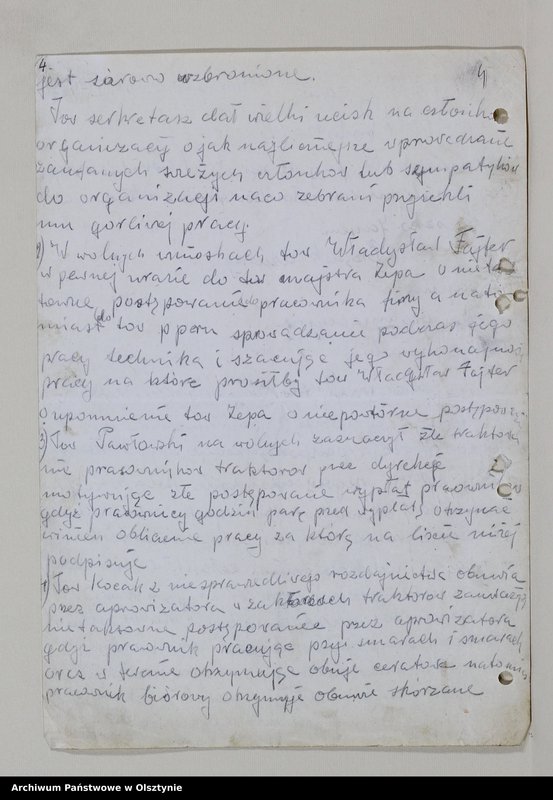 4.
4
jest surowo wzbronione.
Tow sekretasz dał wielki nacisk na członków
organizacij o jak najliczniejsze wprowadzanie
zaufanych swieżych członków lub sympatyków
do organizacji na co zebrani przyrzekli
mu gorliwej pracy.
2) W wolnych wnioskach tow Władysław Fajter
w pewnej urazie do tow majstra Zepa o nietak
towne postępowanie do pracownika firmy a nato
miast do tow p peru sprowadzanie podczas jego
pracy technika i szacując jego wykonajność
pracy na które prosiłby tow Władysław Fajter
o upomnienie tow Zepa o niepowtórne postępowan
3) Tow Pawłowski na wolnych zaznaczył złe traktowa
nie pracowników traktorow prze dyrekcje
motywując złe postępowanie wypłat pracowników
gdyż pracownicy godzin parę przed wypłatą otrzymać
winien obliczenie pracy za którą na liscie niżej
podpisuje
4) Tow Kocak z niesprawedliwego rozdajnictwa obuwia
przez aprowizatora w zakładach traktorow zauważył
nietaktowne postępowanie przez aprowizatora
gdyż pracownik pracując przy smarach i smarach
oraz w terenie otrzymując obuje ceratowe natomias
pracownik biórowy otrzymuje obuwie skórzane
Archiwum Państwowe w Olsztynie